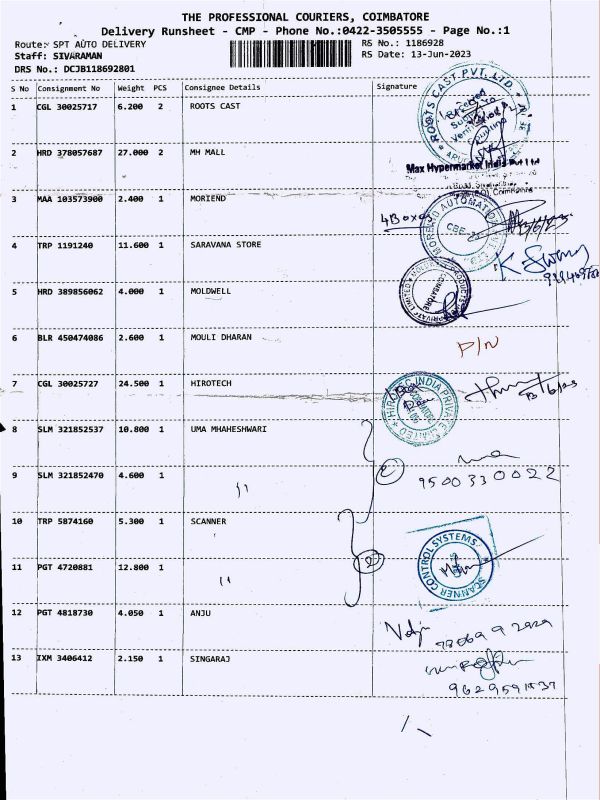 THE PROFESSIONAL COURIERS, COIMBATORE
Delivery Runsheet - CMP - Phone No.:0422-3505555 - Page No.:1
Route: SPT AUTO DELIVERY RS No.: 1186928
Staff: SIVARAMAN RS Date: 13-Jun-2023
DRS No.: DCJB118692801
S No Consignment No Weight PCS Consignee Details Signature
1 CGL 30025717 6.200 2 ROOTS CAST
ROOTS CAST PVT. LTD.
2 HRD 378057687 27.000 2 MH MALL
Max Hypermarket India Pvt Ltd
3 MAA 103573900 2.400 1 MORIEND
4 Boxes
4 TRP 1191240 11.600 1 SARAVANA STORE
5 HRD 389856062 4.000 1 MOLDWELL
COIMBATORE
6 BLR 450474086 2.600 1 MOULI DHARAN
P/N
7 CGL 30025727 24.500 1 HIROTECH
HIROTEC INDIA PRIVATE LIMITED
8 SLM 321852537 10.800 1 UMA MHAHESHWARI
9 SLM 321852470 4.600 1 "
9500330022
10 TRP 5874160 5.300 1 SCANNER
SCANNER CONTROL SYSTEMS
11 PGT 4720881 12.800 1 "
12 PGT 4818730 4.050 1 ANJU
13 IXM 3406412 2.150 1 SINGARAJ